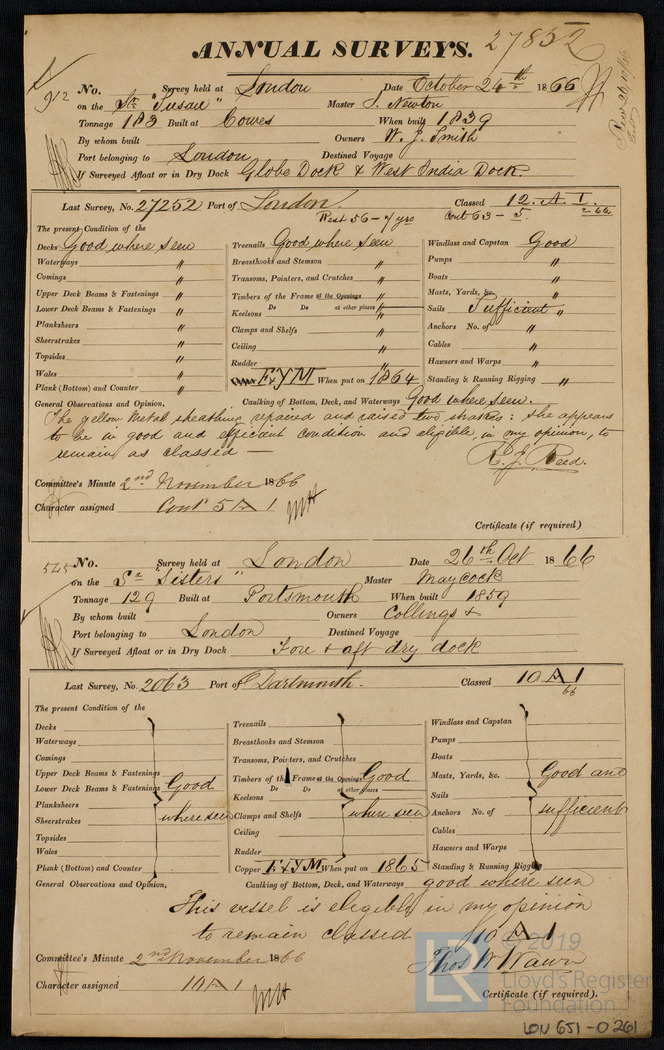 ANNUAL SURVEYS. 27852
912 No. Survey held at London Date October 24th 1866
on the Sr "Susan" Master J. Newton
Tonnage 183 Built at Cowes When built 1839
By whom built Owners W. J. Smith
Port belonging to London Destined Voyage
If Surveyed Afloat or in Dry Dock Globe Dock & West India Dock.
Last Survey, No. 27252 Port of London. Classed 12. A 1. 2.66
Rest 56 - 7 yrs Cont 63 - 5.
The present Condition of the
Decks Good where seen Treenails Good where seen Windlass and Capstan Good
Waterways " Breasthooks and Stemson " Pumps "
Comings " Transoms, Pointers, and Crutches " Boats "
Upper Deck Beams & Fastenings " Timbers of the Frame at the Openings " Masts, Yards, &c. "
Do Do at other places "
Lower Deck Beams & Fastenings " Keelsons " Sails Sufficient "
Planksheers " Clamps and Shelfs " Anchors No. of "
Sheerstrakes " Ceiling " Cables "
Topsides " Rudder " Hawsers and Warps "
Wales " F&YM When put on 1864 Standing & Running Rigging "
Plank (Bottom) and Counter " Caulking of Bottom, Deck, and Waterways Good where seen.
General Observations and Opinion,
The yellow metal sheathing repaired and raised two strakes: she appears
to be in good and efficient condition and eligible, in my opinion, to
remain as classed —
R. J. Reed.
Committee's Minute 2nd November 1866
Character assigned Contd 5 A 1
Certificate (if required)
525 No. Survey held at London Date 26th Oct 1866
on the Sr "Sisters" Master Maycock
Tonnage 129 Built at Portsmouth When built 1859
By whom built Owners Collings &
Port belonging to London Destined Voyage
If Surveyed Afloat or in Dry Dock Fore & aft dry dock
Last Survey, No. 2063 Port of Dartmouth. Classed 10 A 1 66
The present Condition of the
Decks Treenails Windlass and Capstan
Waterways Breasthooks and Stemson Pumps
Comings Transoms, Pointers, and Crutches Boats
Upper Deck Beams & Fastenings Timbers of the Frame at the Openings Good Masts, Yards, &c. Good and
Do Do at other places
Lower Deck Beams & Fastenings Good Keelsons Sails
Planksheers where seen Clamps and Shelfs where seen Anchors No. of sufficient
Sheerstrakes Ceiling Cables
Topsides Rudder Hawsers and Warps
Wales Copper F&YM When put on 1865 Standing & Running Rigging
Plank (Bottom) and Counter Caulking of Bottom, Deck, and Waterways good where seen
General Observations and Opinion,
This vessel is eligible in my opinion
to remain classed 10 A 1
Thos W Wawn
Committee's Minute 2nd November 1866
Character assigned 10 A 1
Certificate (if required).
© 2019
Lloyd's Register
Foundation
LON 651-0261